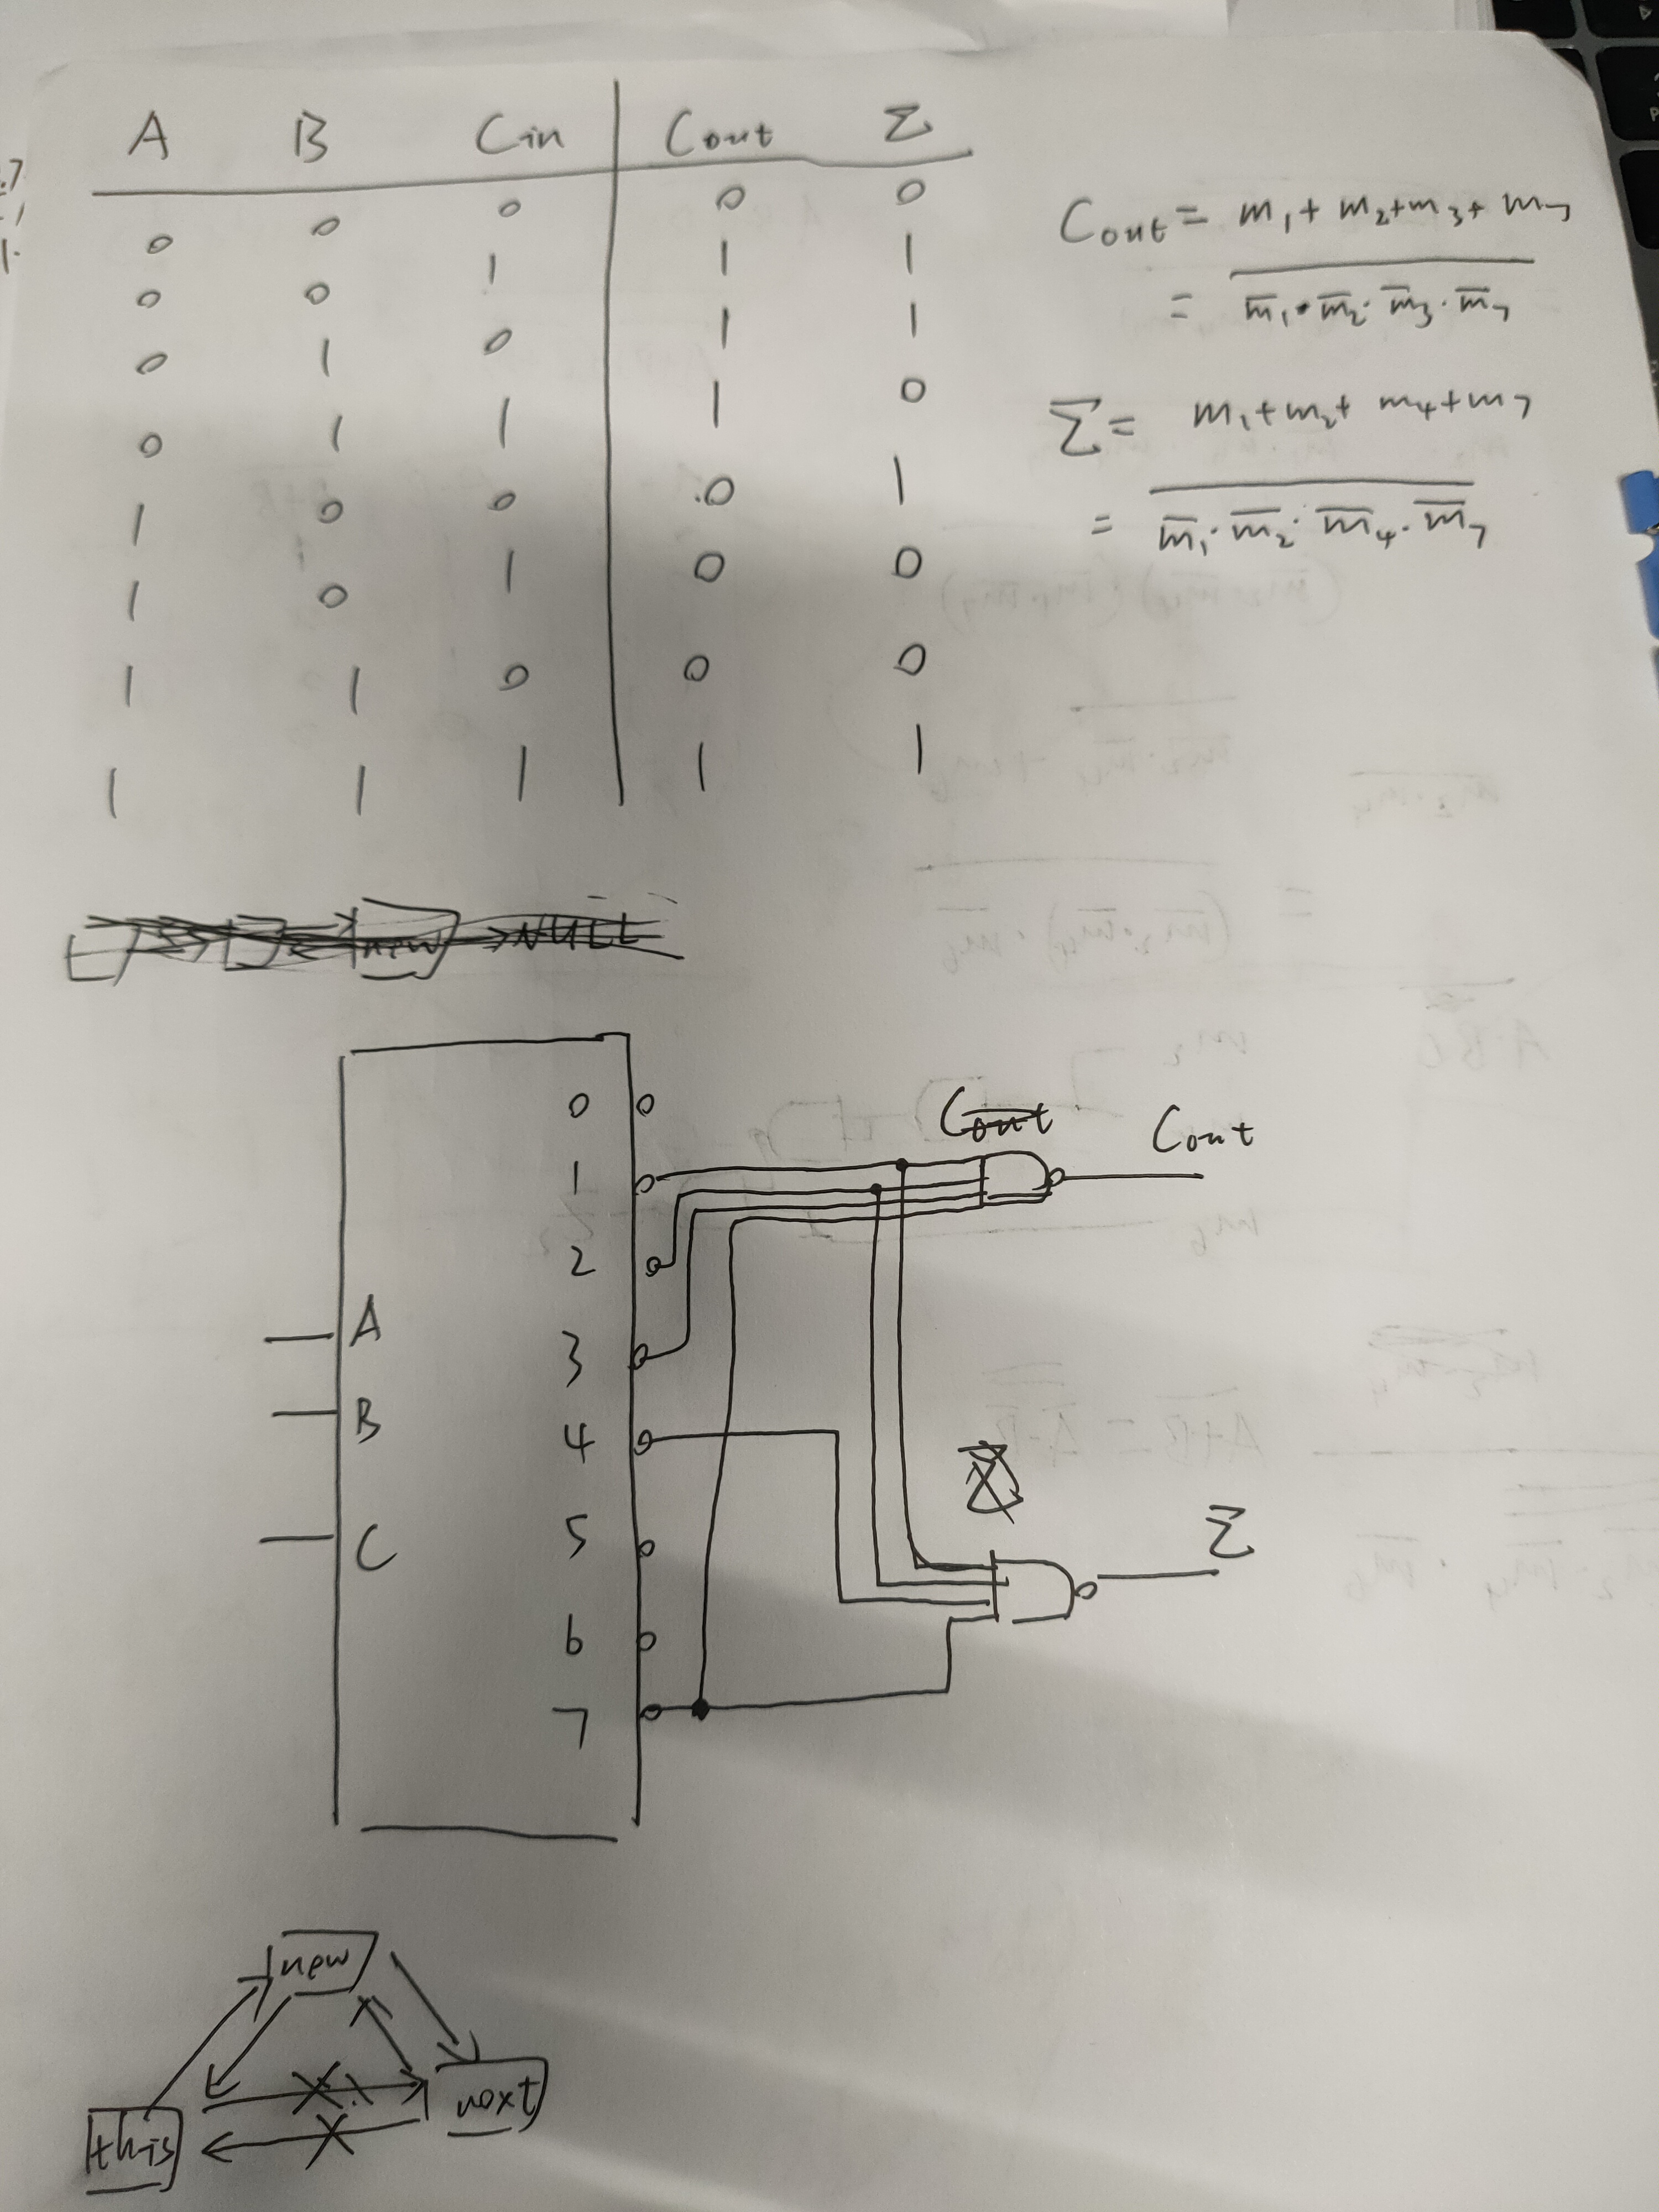 A B Cin Cout Σ
0 0 0 0 0
0 0 1 1 1
0 1 0 1 1
0 1 1 1 0
1 0 0 0 1
1 0 1 0 0
1 1 0 0 0
1 1 1 1 1
Cout = m₁ + m₂ + m₃ + m₇
= \overline{m̅₁ · m̅₂ · m̅₃ · m̅₇}
Σ = m₁ + m₂ + m₄ + m₇
= \overline{m̅₁ · m̅₂ · m̅₄ · m̅₇}
new → NULL
0
1
2
3
4
5
6
7
A
B
C
Cout
Cout
Σ
new
this
next